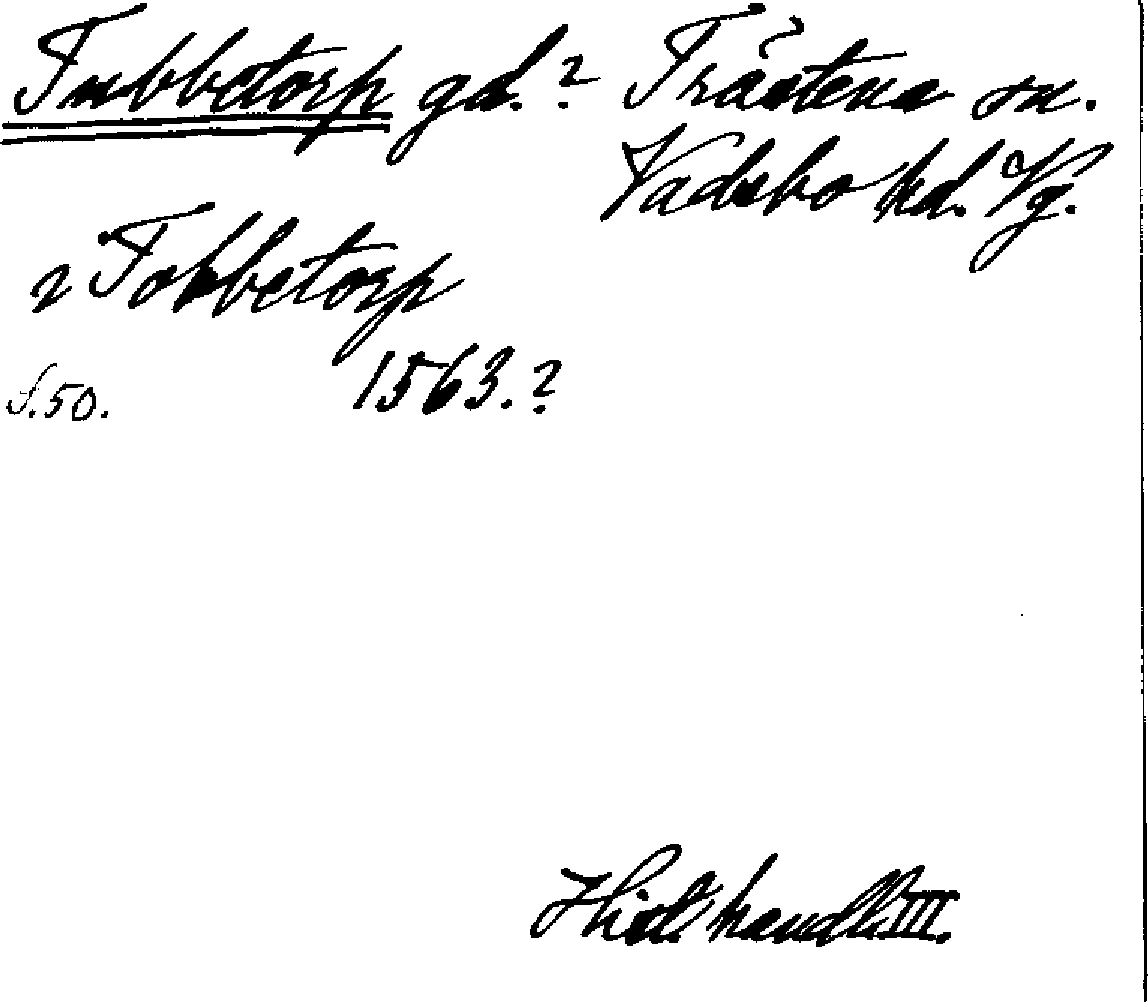 Tubbetorp gd.? Trästena sn.
Vadsbo hd. Vg.
2 Tobbetorp
1563.?
s. 50.
Hist. handl. III.